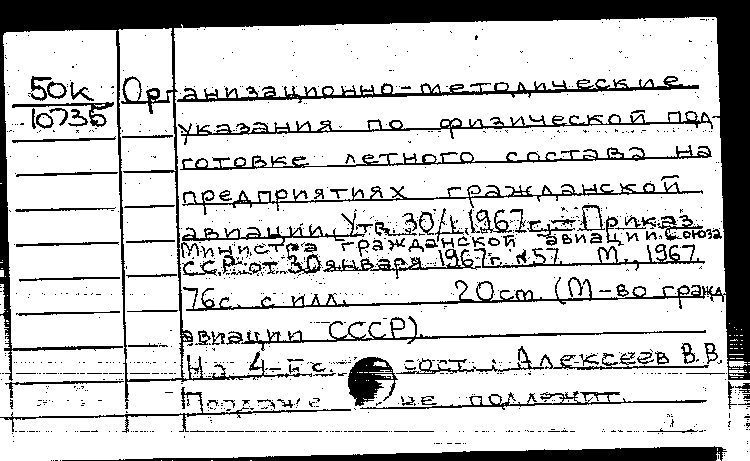 50к Организационно-методические
10735
указания по физической под-
готовке летного состава на
предприятиях гражданской
авиации. Утв. 30/I.1967г. – Приказ
Министра гражданской авиации Союза
ССР от 30 января 1967г. №57. М., 1967.
76с. с илл. 20см. (М-во гражд.
авиации СССР).
На 4-й с. сост.: Алексеев В.В.
Продаже не подлежит.